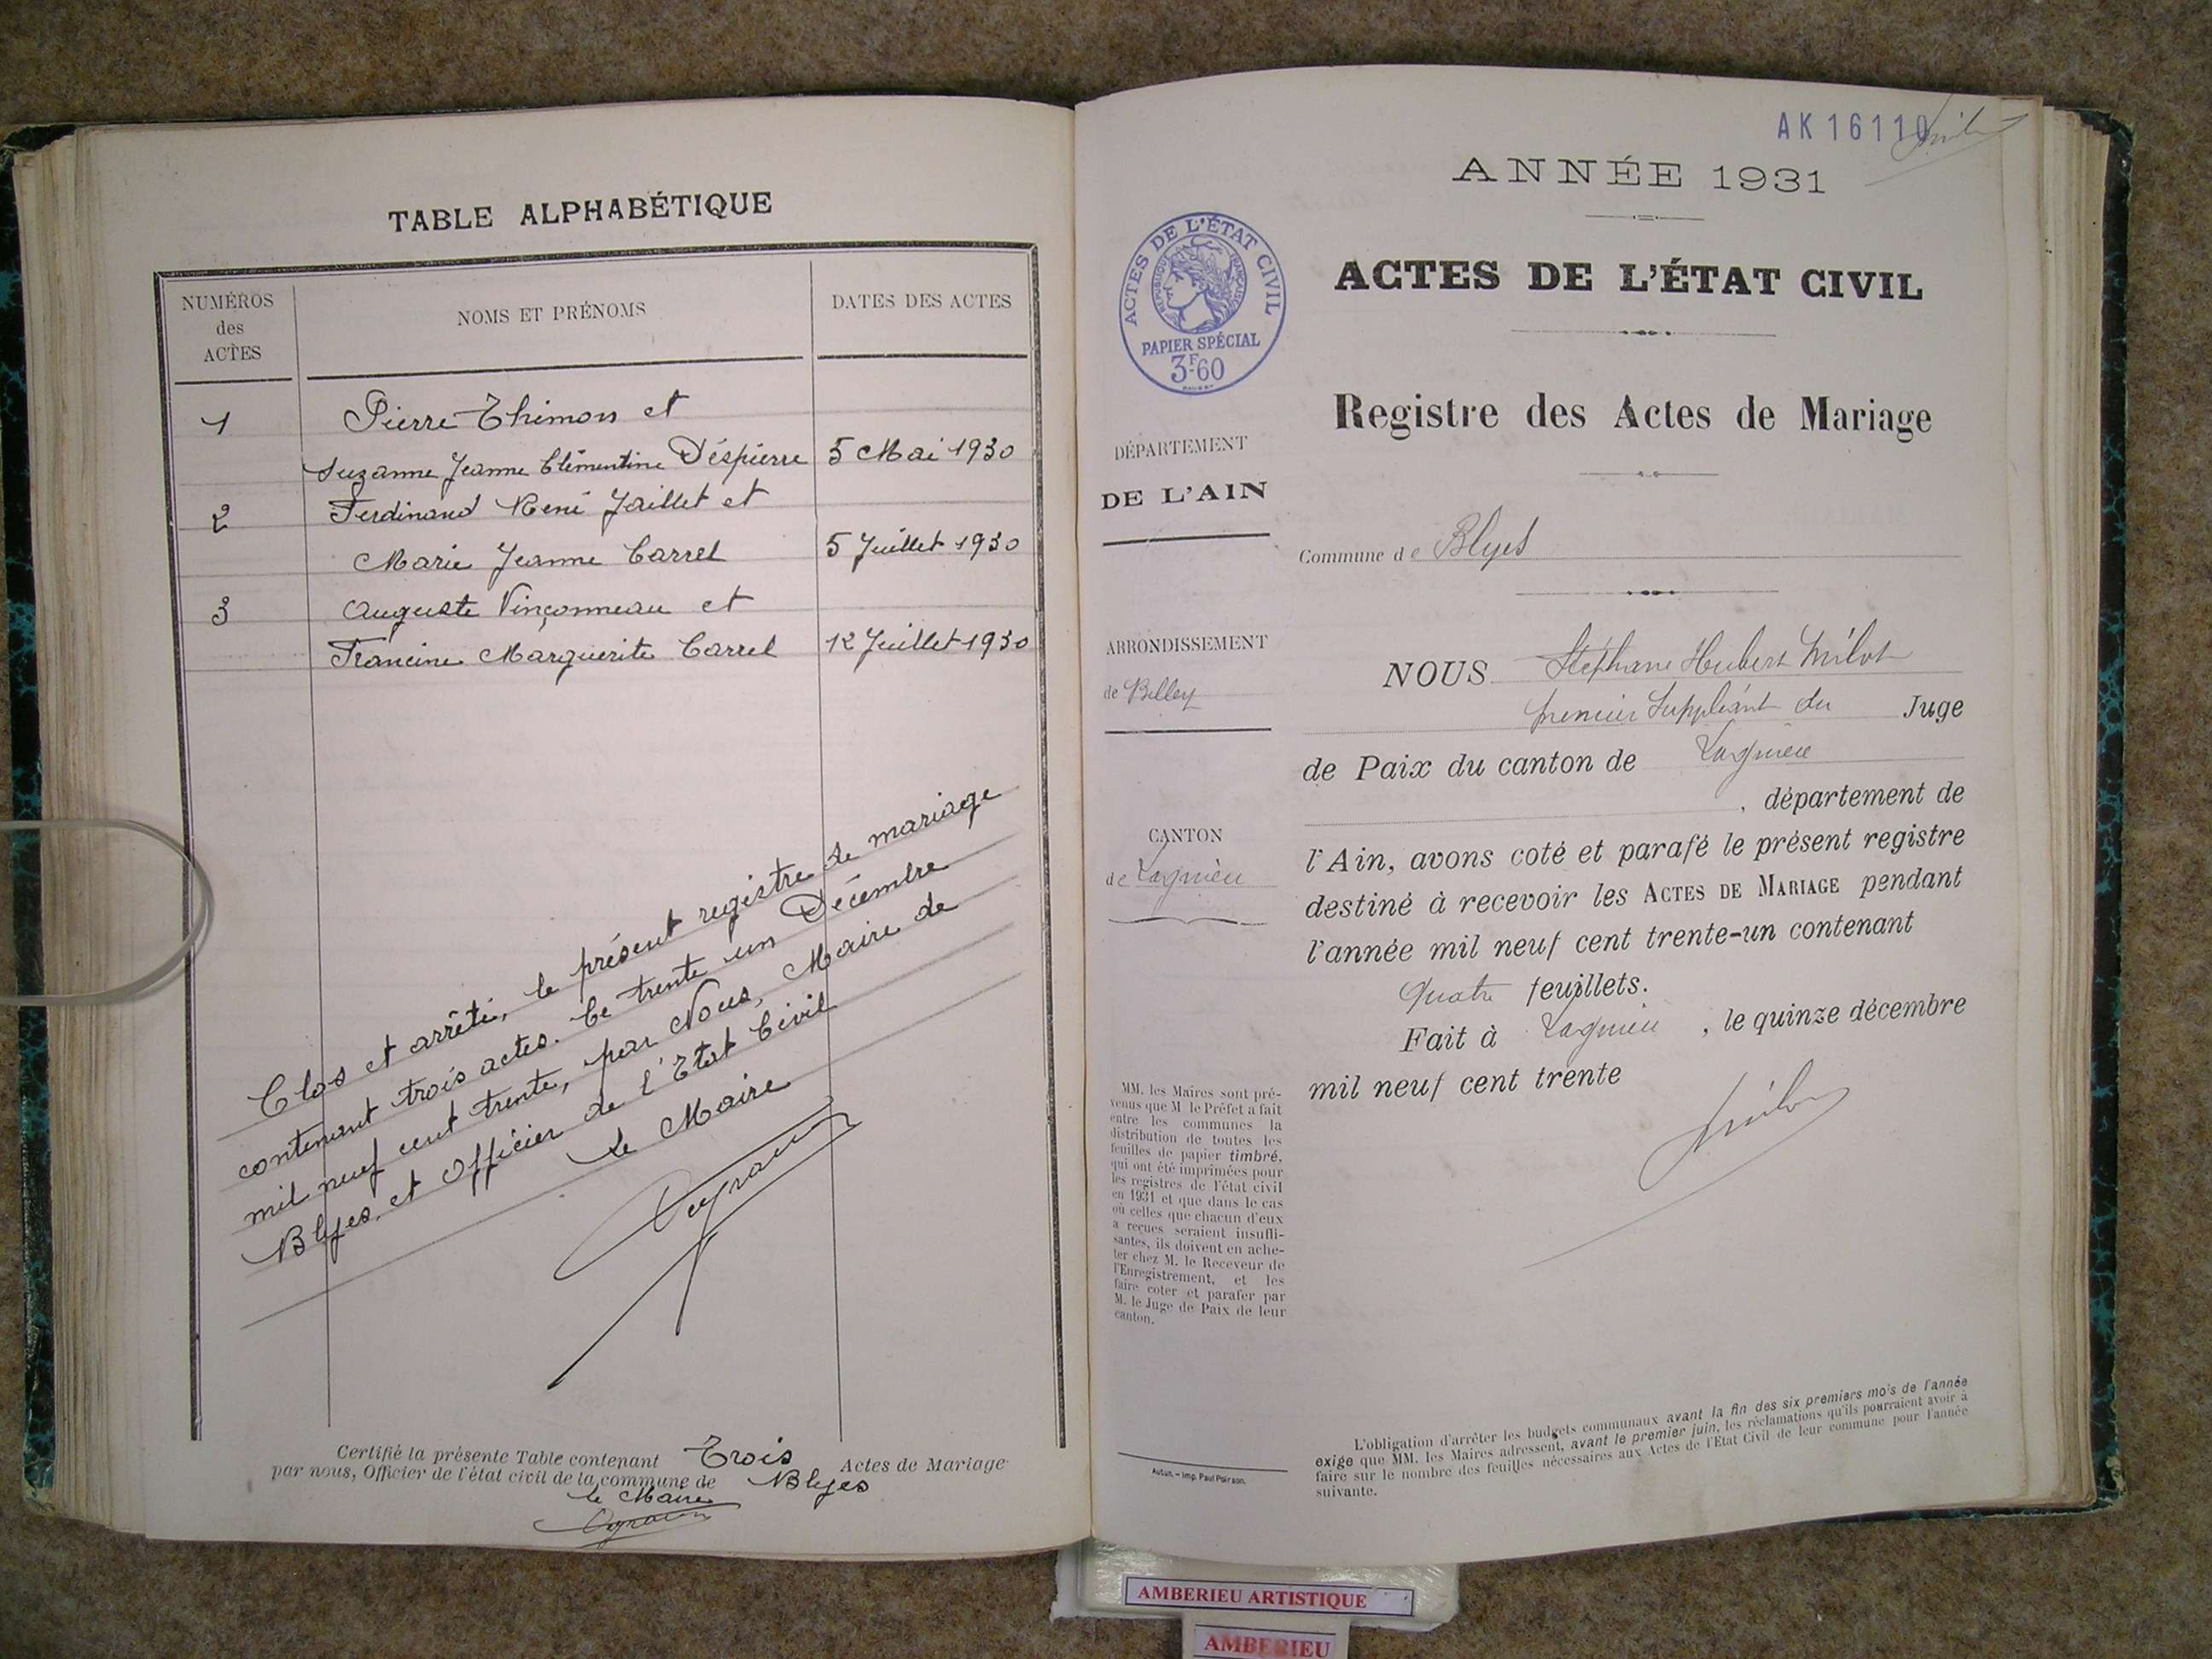 TABLE ALPHABÉTIQUE
NUMÉROS
des
ACTES
NOMS ET PRÉNOMS
DATES DES ACTES
1 Pierre Thimon et
Suzanne Jeanne Clémentine Déspierre 5 Mai 1930
2 Ferdinand René Jaillet et
Marie Jeanne Carrel 5 Juillet 1930
3 Auguste Vinçonneau et
Francine Marguerite Carrel 12 Juillet 1930
Clos et arrêté, le présent registre de mariage
contenant trois actes. Ce trente un Décembre
mil neuf cent trente, par Nous, Maire de
Blyes, et Officier de l'Etat Civil
le Maire
Certifié la présente Table contenant Trois Actes de Mariage
par nous, Officier de l'état civil de la commune de Blyes
le Maire
AK 16110
ANNÉE 1931
ACTES DE L'ÉTAT CIVIL
RÉPUBLIQUE FRANÇAISE
PAPIER SPÉCIAL
3F.60
ACTES DE L'ÉTAT CIVIL
Registre des Actes de Mariage
DÉPARTEMENT
DE L'AIN
Commune de Blyes
ARRONDISSEMENT
de Belley
CANTON
de Lagnieu
NOUS Stéphane Hubert Milot
premier Suppléant du Juge
de Paix du canton de Lagnieu
, département de
l'Ain, avons coté et parafé le présent registre
destiné à recevoir les ACTES DE MARIAGE pendant
l'année mil neuf cent trente-un contenant
Quatre feuillets.
Fait à Lagnieu , le quinze décembre
mil neuf cent trente
Milot
MM. les Maires sont pré-
venus que M. le Préfet a fait
entre les communes la
distribution de toutes les
feuilles de papier timbré,
qui ont été imprimées pour
les registres de l'état civil
en 1931 et que dans le cas
où celles que chacun d'eux
a reçues seraient insuffi-
santes, ils doivent en ache-
ter chez M. le Receveur de
l'Enregistrement, et les
faire coter et parafer par
M. le Juge de Paix de leur
canton.
Autun. – Imp. Paul Poirson.
L'obligation d'arrêter les budgets communaux avant la fin des six premiers mois de l'année
exige que MM. les Maires adressent, avant le premier juin, les réclamations qu'ils pourraient avoir à
faire sur le nombre des feuilles nécessaires aux Actes de l'Etat Civil de leur commune pour l'année
suivante.
AMBERIEU ARTISTIQUE
AMBERIEU